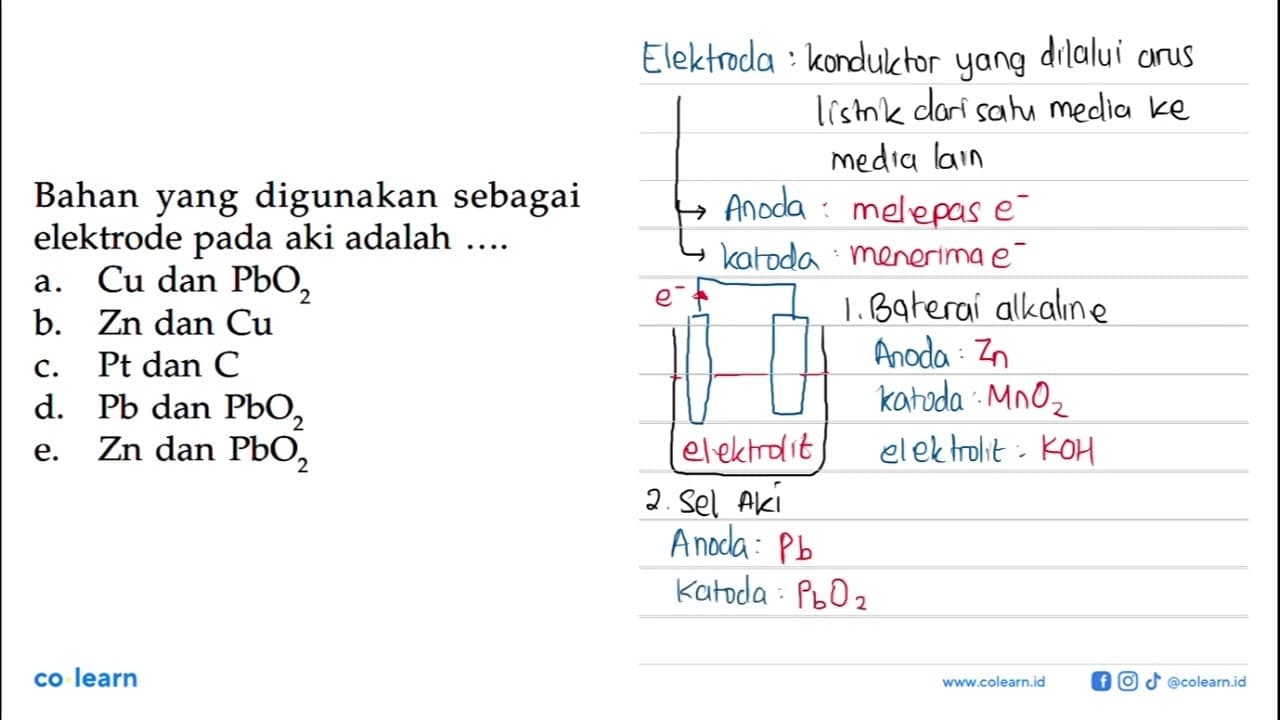 Bahan yang digunakan sebagai
elektrode pada aki adalah ....
a. Cu dan PbO₂
b. Zn dan Cu
c. Pt dan C
d. Pb dan PbO₂
e. Zn dan PbO₂
Elektroda : konduktor yang dilalui arus
listrik dari satu media ke
media lain
Anoda : melepas e⁻
katoda : menerima e⁻
e⁻
elektrolit
1. Baterai alkaline
Anoda : Zn
katoda : MnO₂
elektrolit : KOH
2. Sel Aki
Anoda : Pb
Katoda : PbO₂
co learn
www.colearn.id
@colearn.id